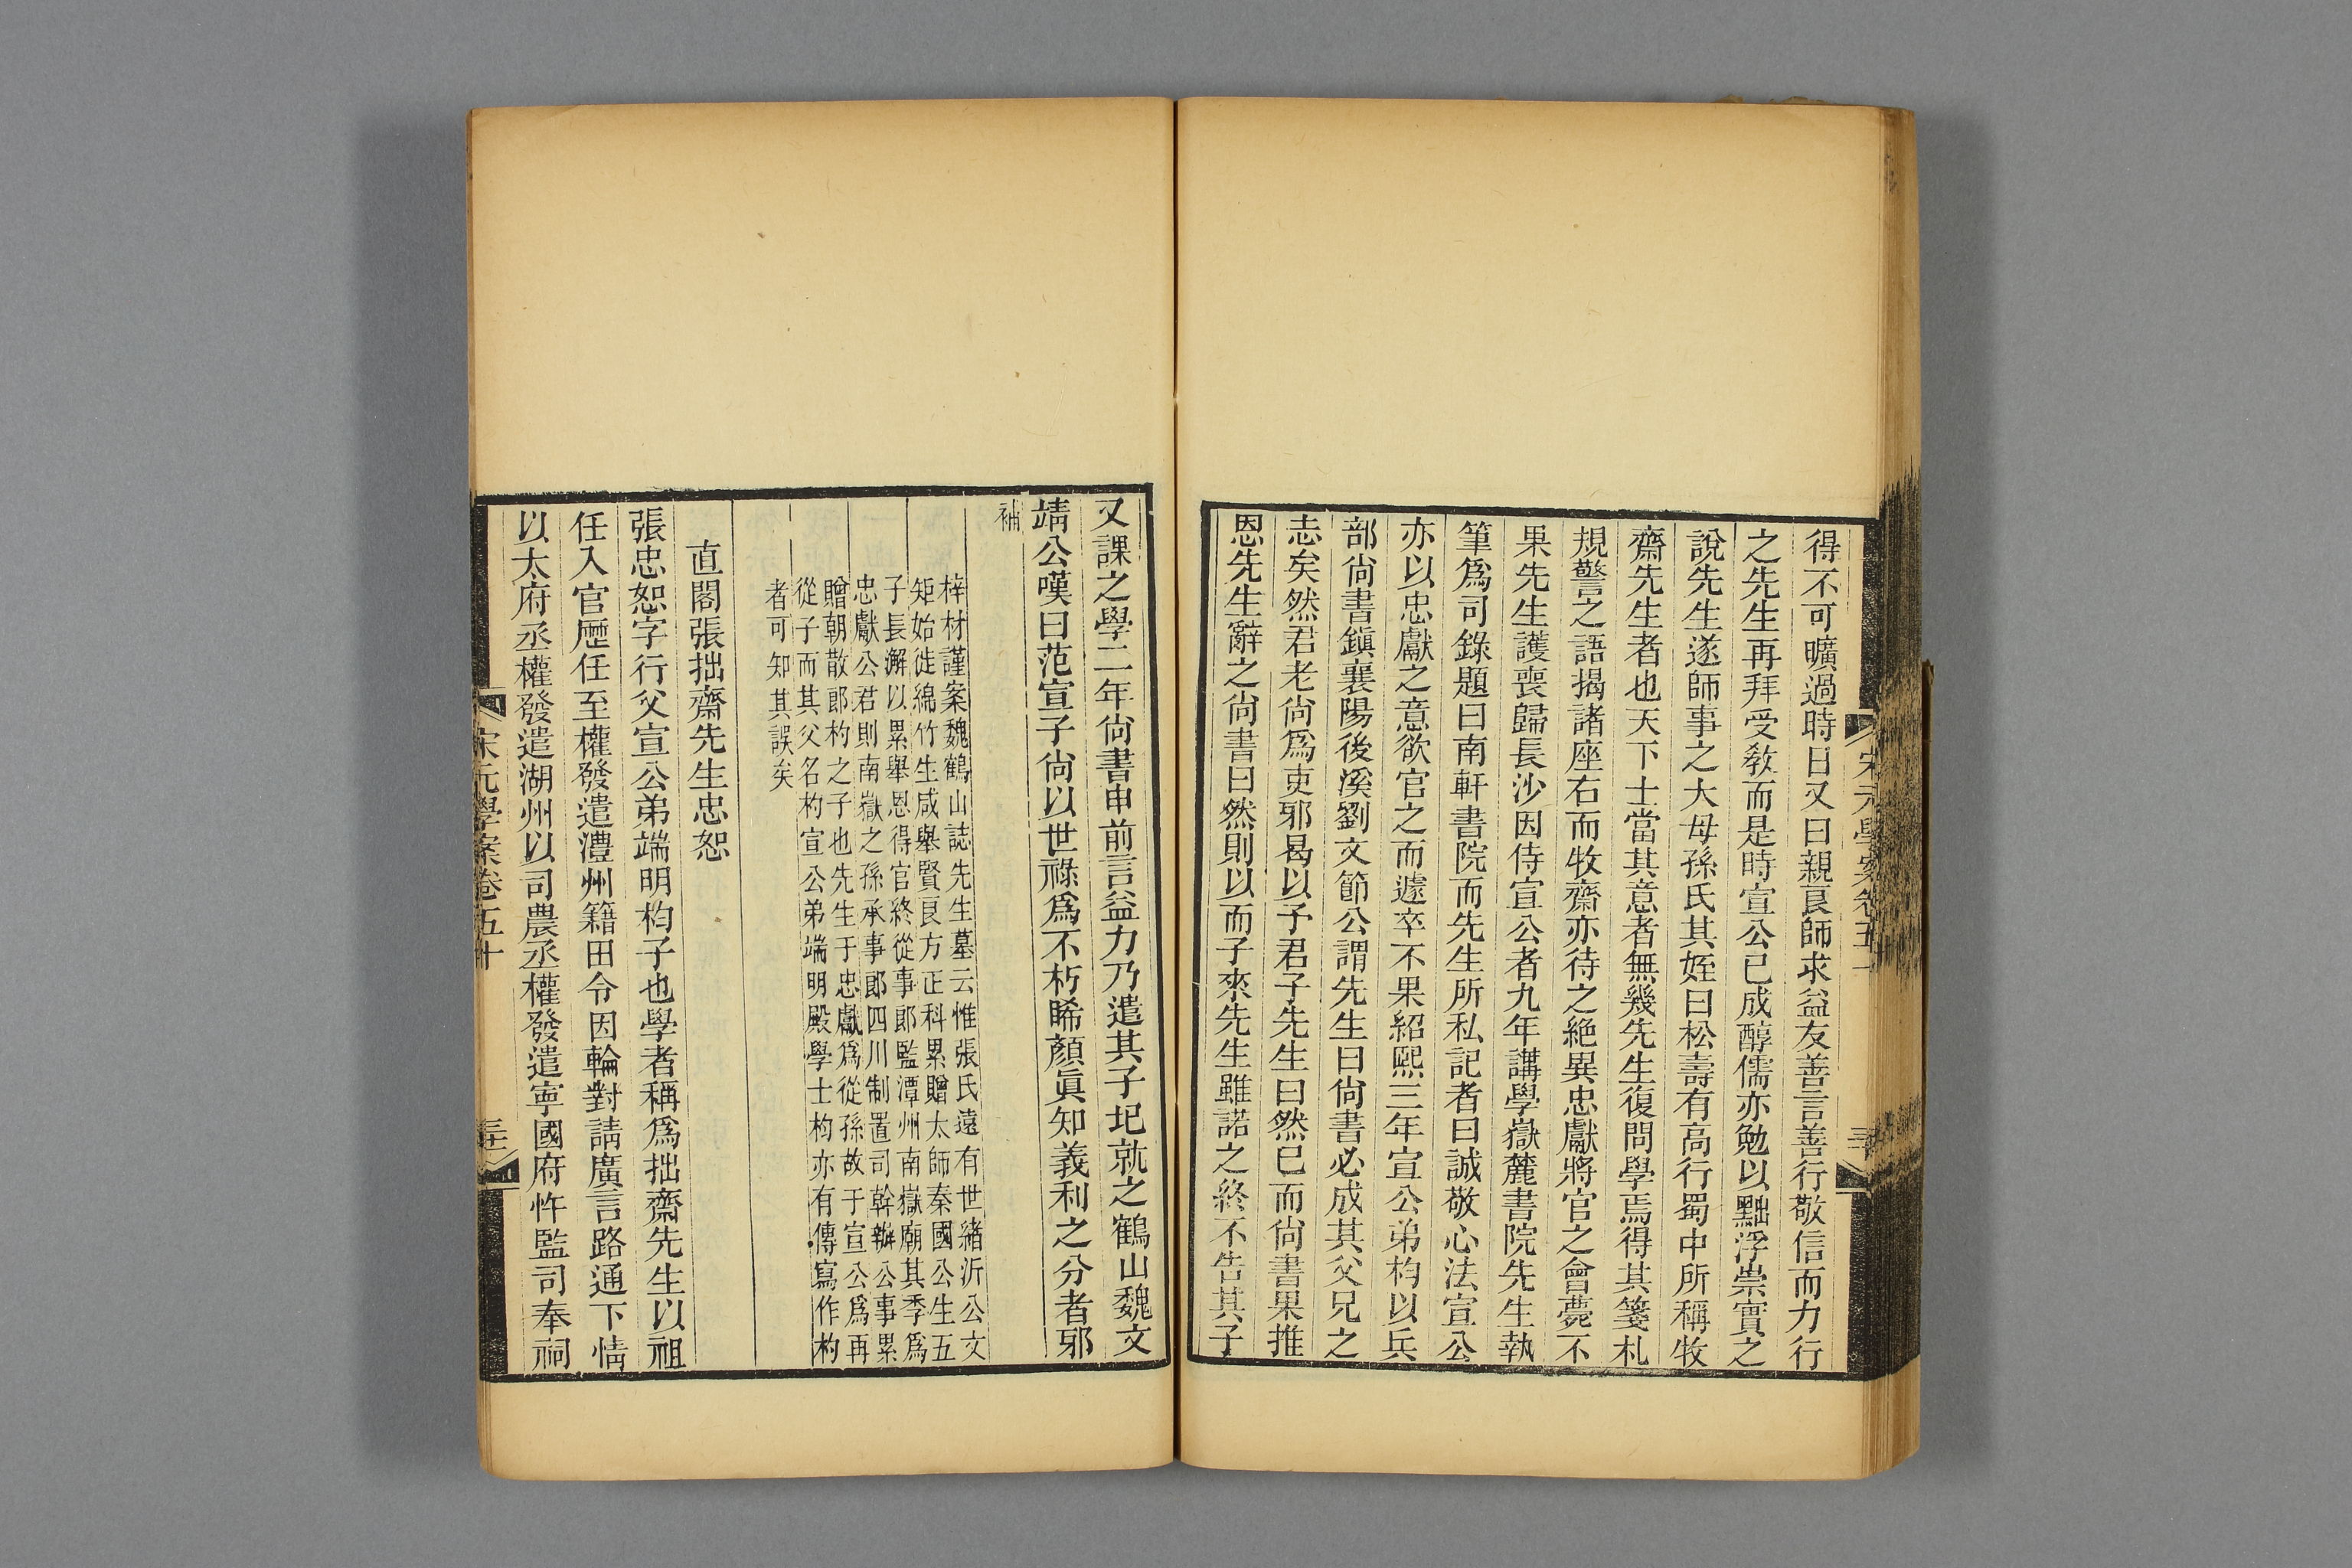 宋元學案卷五十
得不可曠過時日又曰親良師求益友善言善行敬信而力行
之先生再拜受敎而是時宣公已成醇儒亦勉以黜浮崇實之
說先生遂師事之大母孫氏其姪曰松壽有高行蜀中所稱牧
齋先生者也天下士當其意者無幾先生復問學焉得其箋札
規警之語揭諸座右而牧齋亦待之絶異忠獻將官之會薨不
果先生護喪歸長沙因侍宣公者九年講學嶽麓書院先生執
筆爲司錄題曰南軒書院而先生所私記者曰誠敬心法宣公
亦以忠獻之意欲官之而遽卒不果紹熙三年宣公弟杓以兵
部尙書鎭襄陽後溪劉文節公謂先生曰尙書必成其父兄之
志矣然君老尙爲吏邪曷以予君子先生曰然已而尙書果推
恩先生辭之尙書曰然則以而子來先生雖諾之終不告其子
又課之學二年尙書申前言益力乃遣其子圯就之鶴山魏文
靖公嘆曰范宣子尙以世祿爲不朽睎顏眞知義利之分者邪
補
梓材謹案魏鶴山誌先生墓云惟張氏遠有世緒沂公文
矩始徙綿竹生咸舉賢良方正科累贈太師秦國公生五
子長澥以累舉恩得官終從事郞監潭州南嶽廟其季爲
忠獻公君則南嶽之孫承事郞四川制置司幹辦公事累
贈朝散郞杓之子也先生于忠獻爲從孫故于宣公爲再
從子而其父名杓宣公弟端明殿學士杓亦有傳寫作杓
者可知其誤矣
直閣張拙齋先生忠恕
張忠恕字行父宣公弟端明杓子也學者稱爲拙齋先生以祖
任入官歷任至權發遣澧州籍田令因輪對請廣言路通下情
以太府丞權發遣湖州以司農丞權發遣寧國府忤監司奉祠
宋元學案卷五十